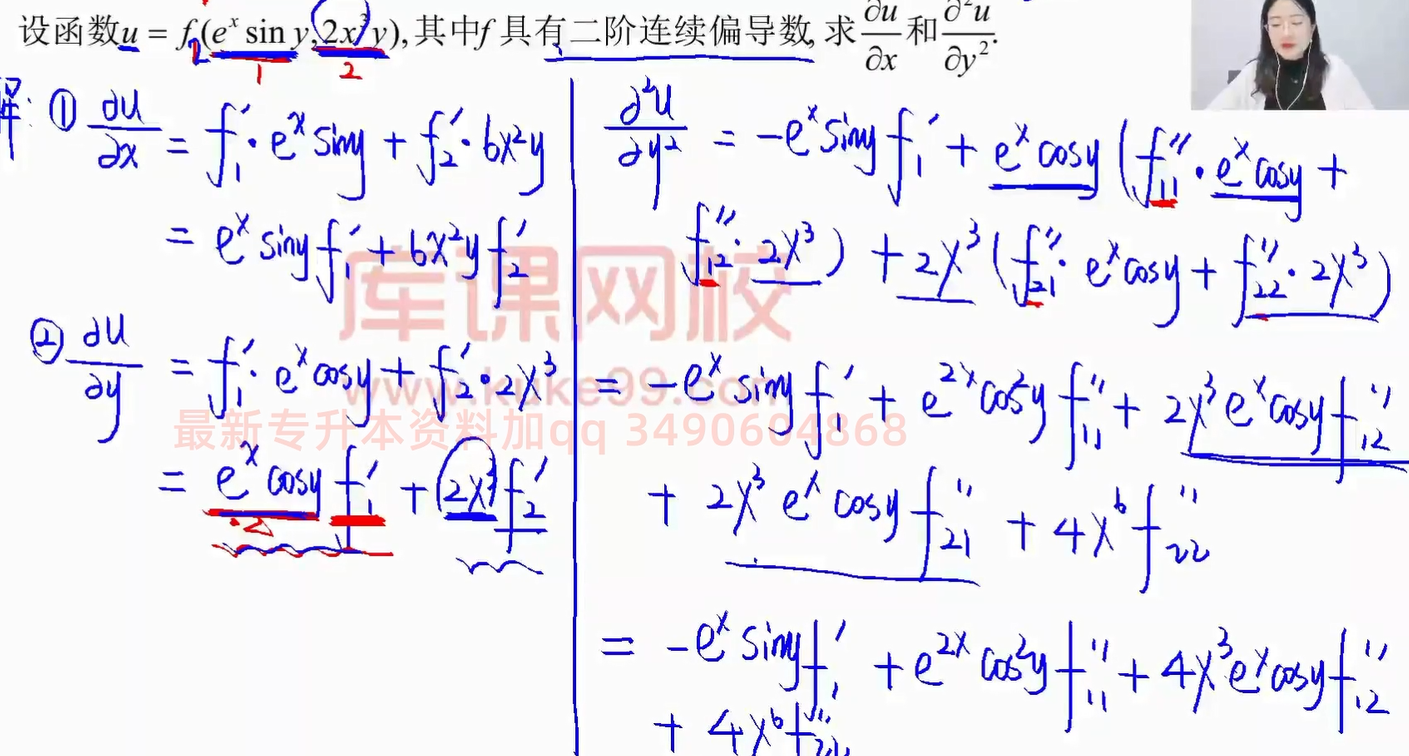 设函数u = f(eˣ sin y, 2x³y), 其中f 具有二阶连续偏导数, 求 ∂u/∂x 和 ∂²u/∂y².
1 2
解: ① ∂u/∂x = f₁′·eˣ siny + f₂′·6x²y
= eˣ siny f₁′ + 6x²y f₂′
② ∂u/∂y = f₁′·eˣ cosy + f₂′·2x³
= eˣ cosy f₁′ + 2x³ f₂′
∂²u/∂y² = -eˣ siny f₁′ + eˣ cosy (f₁₁″·eˣ cosy +
f₁₂″·2x³) + 2x³ (f₂₁″·eˣ cosy + f₂₂″·2x³)
= -eˣ siny f₁′ + e²ˣ cos²y f₁₁″ + 2x³ eˣ cosy f₁₂″
+ 2x³ eˣ cosy f₂₁″ + 4x⁶ f₂₂″
= -eˣ siny f₁′ + e²ˣ cos²y f₁₁″ + 4x³ eˣ cosy f₁₂″
+ 4x⁶ f₂₂″
库课网校
www.kuke99.com
最新专升本资料加qq 3490604868